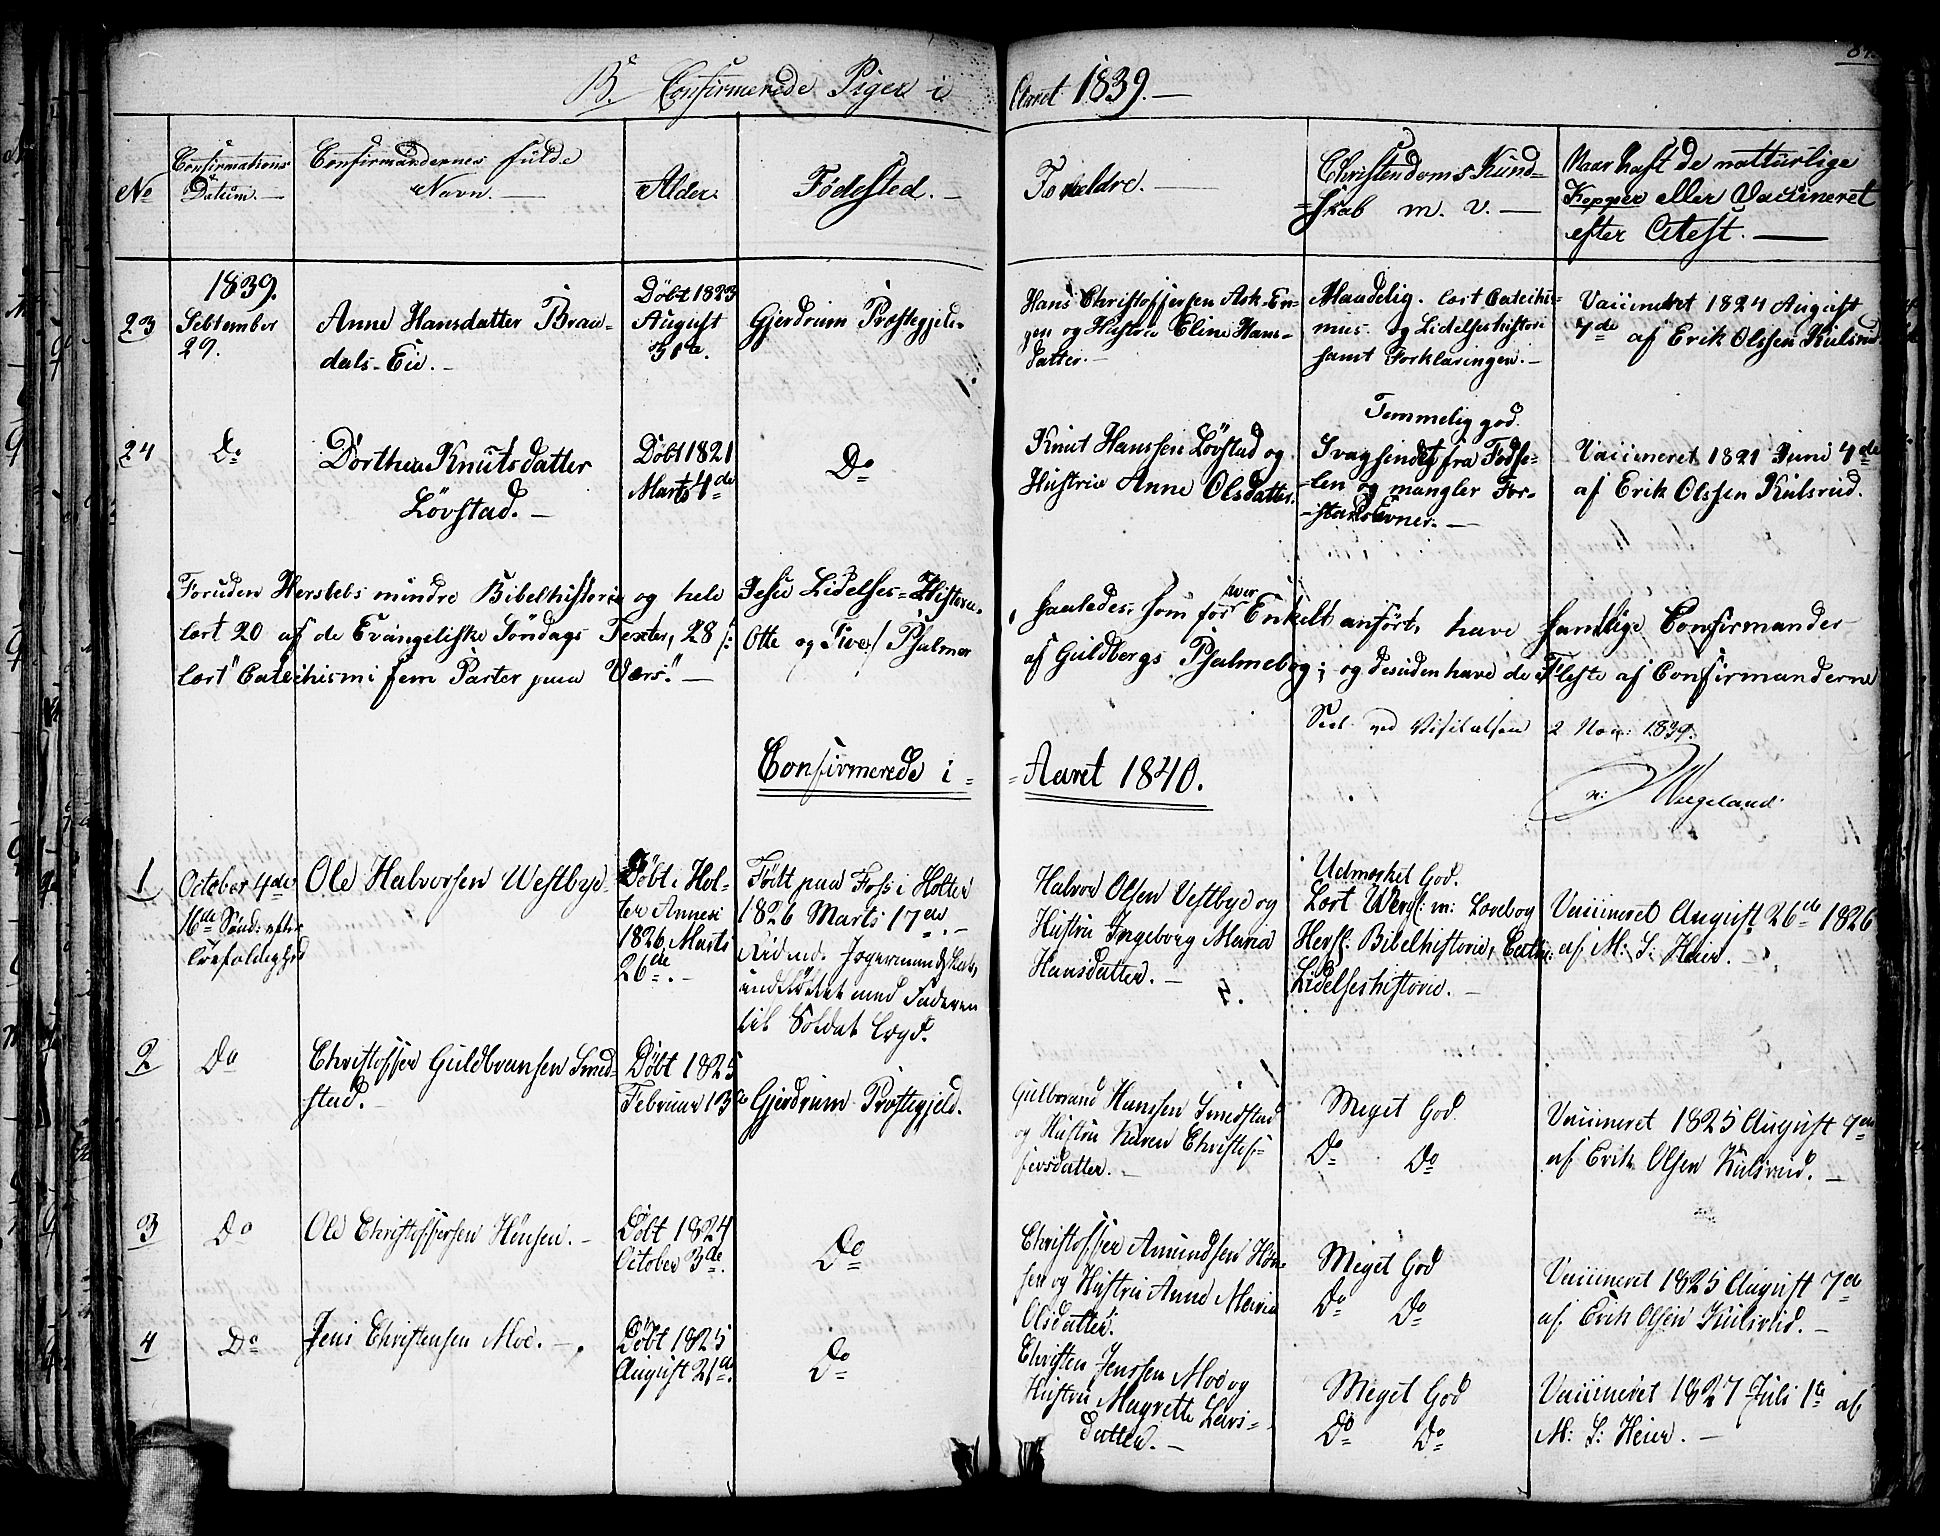 B. Confirmerede Piger i Aaret 1839.—
No
Confirmations Datum.—
Confirmandernes fulde Navn.—
Alder.
Fødested.—
Forældre.—
Christendoms Kund-
=skab m. v.—
Naar haft de naturlige
Kopper eller Vaccineret
efter Atest.—
1839.
23
September
29.
Anne Hansdatter Brau-
dals-Eie.—
Døbt 1823
August
31te.
Gjerdrum Præstegjeld.
Hans Christoffersen Ask-En-
gen og Hustrue Eline Hans-
datter.—
Maadelig. lært Catechis-
mus og Lidelseshistorie
samt Forklaringen.—
Vaccineret 1824 August
7de af Erik Olssen Kulsrud.
24
Do
Dorthea Knutsdatter
Løvstad.—
Døbt 1821
Marts 4de
Do
Knut Hanssen Løvstad og
Hustrue Anne Olsdatter.
Temmelig god.
Svagsindet fra Fødse-
-len og mangler For-
-stands Evner.—
Vaccineret 1821 Juni 4de
af Erik Olssen Kulsrud.
Foruden Herslebs mindre Bibelhistorie og hele Jesu Lidelses-Historie, saaledes, som for hver Enkelt anført, have samtlige Confirmander
lært 20 af de Evangeliske Søndags Texter, 28 /: Otte og Tive :/ Psalmer af Guldbergs Psalmebog; og desuden have de Fleste af Confirmanderne
lært "Catechismi fem Parter paa Vers."—
Seet ved Visitatsen 2 Nov: 1839.
N: Wergeland.
Confirmerede i=
=Aaret 1840.
1
October 4de
16de Sønd: efter
Trefoldighed
Ole Halvorsen Westbye
Døbt i Hol-
ter Annexi
1826 Marts
26de.—
Født paa Foss i Holter
1826 Marts 17de.—
med Faderen
til Soldat Lægd.
Halvor Olsen Vestbye og
Hustru Ingeborg Maria
Hansdatter.—
Udmærket God.
Lært Wexs: m: Lærebog
Hersl: Bibelhistorie, Cath:
Lidelseshistorie.—
Vaccineret August 26de 1826
af M: S: Heier.
2
Do
Christoffer Guldbransen Smed-
stad.—
Døbt 1825
Februar 13de
Gjerdrum Præstegjeld.
Gulbrand Hanssen Smedstad
og Hustru Karen Christof-
fersdatter.—
Meget God
Do Do
Vaccineret 1825 August 7de
af Erik Olsen Kulsrud.—
3
Do
Ole Christoffersen Hønsen.—
Døbt 1824
October 3de.
Do
Christoffer Amundsen Høn-
sen og Hustru Anne Maria
Olsdatter.
Meget God
Do Do
Vaccineret 1825 August 7de
af Erik Olsen Kulsrud.—
4
Do
Jens Christensen Moe.—
Døbt 1825
August 21de.
Do
Christen Jenssen Moe og
Hustru Magrette Lars-
datter.—
Meget God
Do Do
Vaccineret 1827 Juli 1te af
M: S: Heier.—